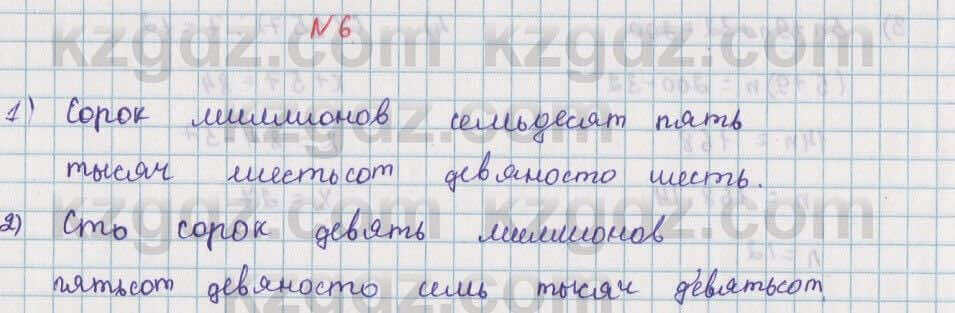 №6
1) Сорок миллионов семьдесят пять
тысяч шестьсот девяносто шесть.
2) Сто сорок девять миллионов
пятьсот девяносто семь тысяч девятьсот
kzgdz.com